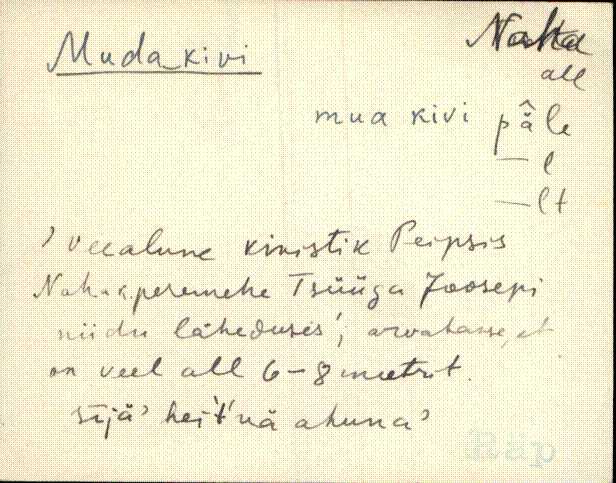 Mudakivi
Naha
all
mua kivi päle
— l
— lt
' veealune kivistik Peipsis
Naha k. peremehe Tsüüga Joosepi
niidu läheduses'; arvatasse, et
on veel all 6–8 meetrit.
sějä' hei't'nä ahuna'
Räp